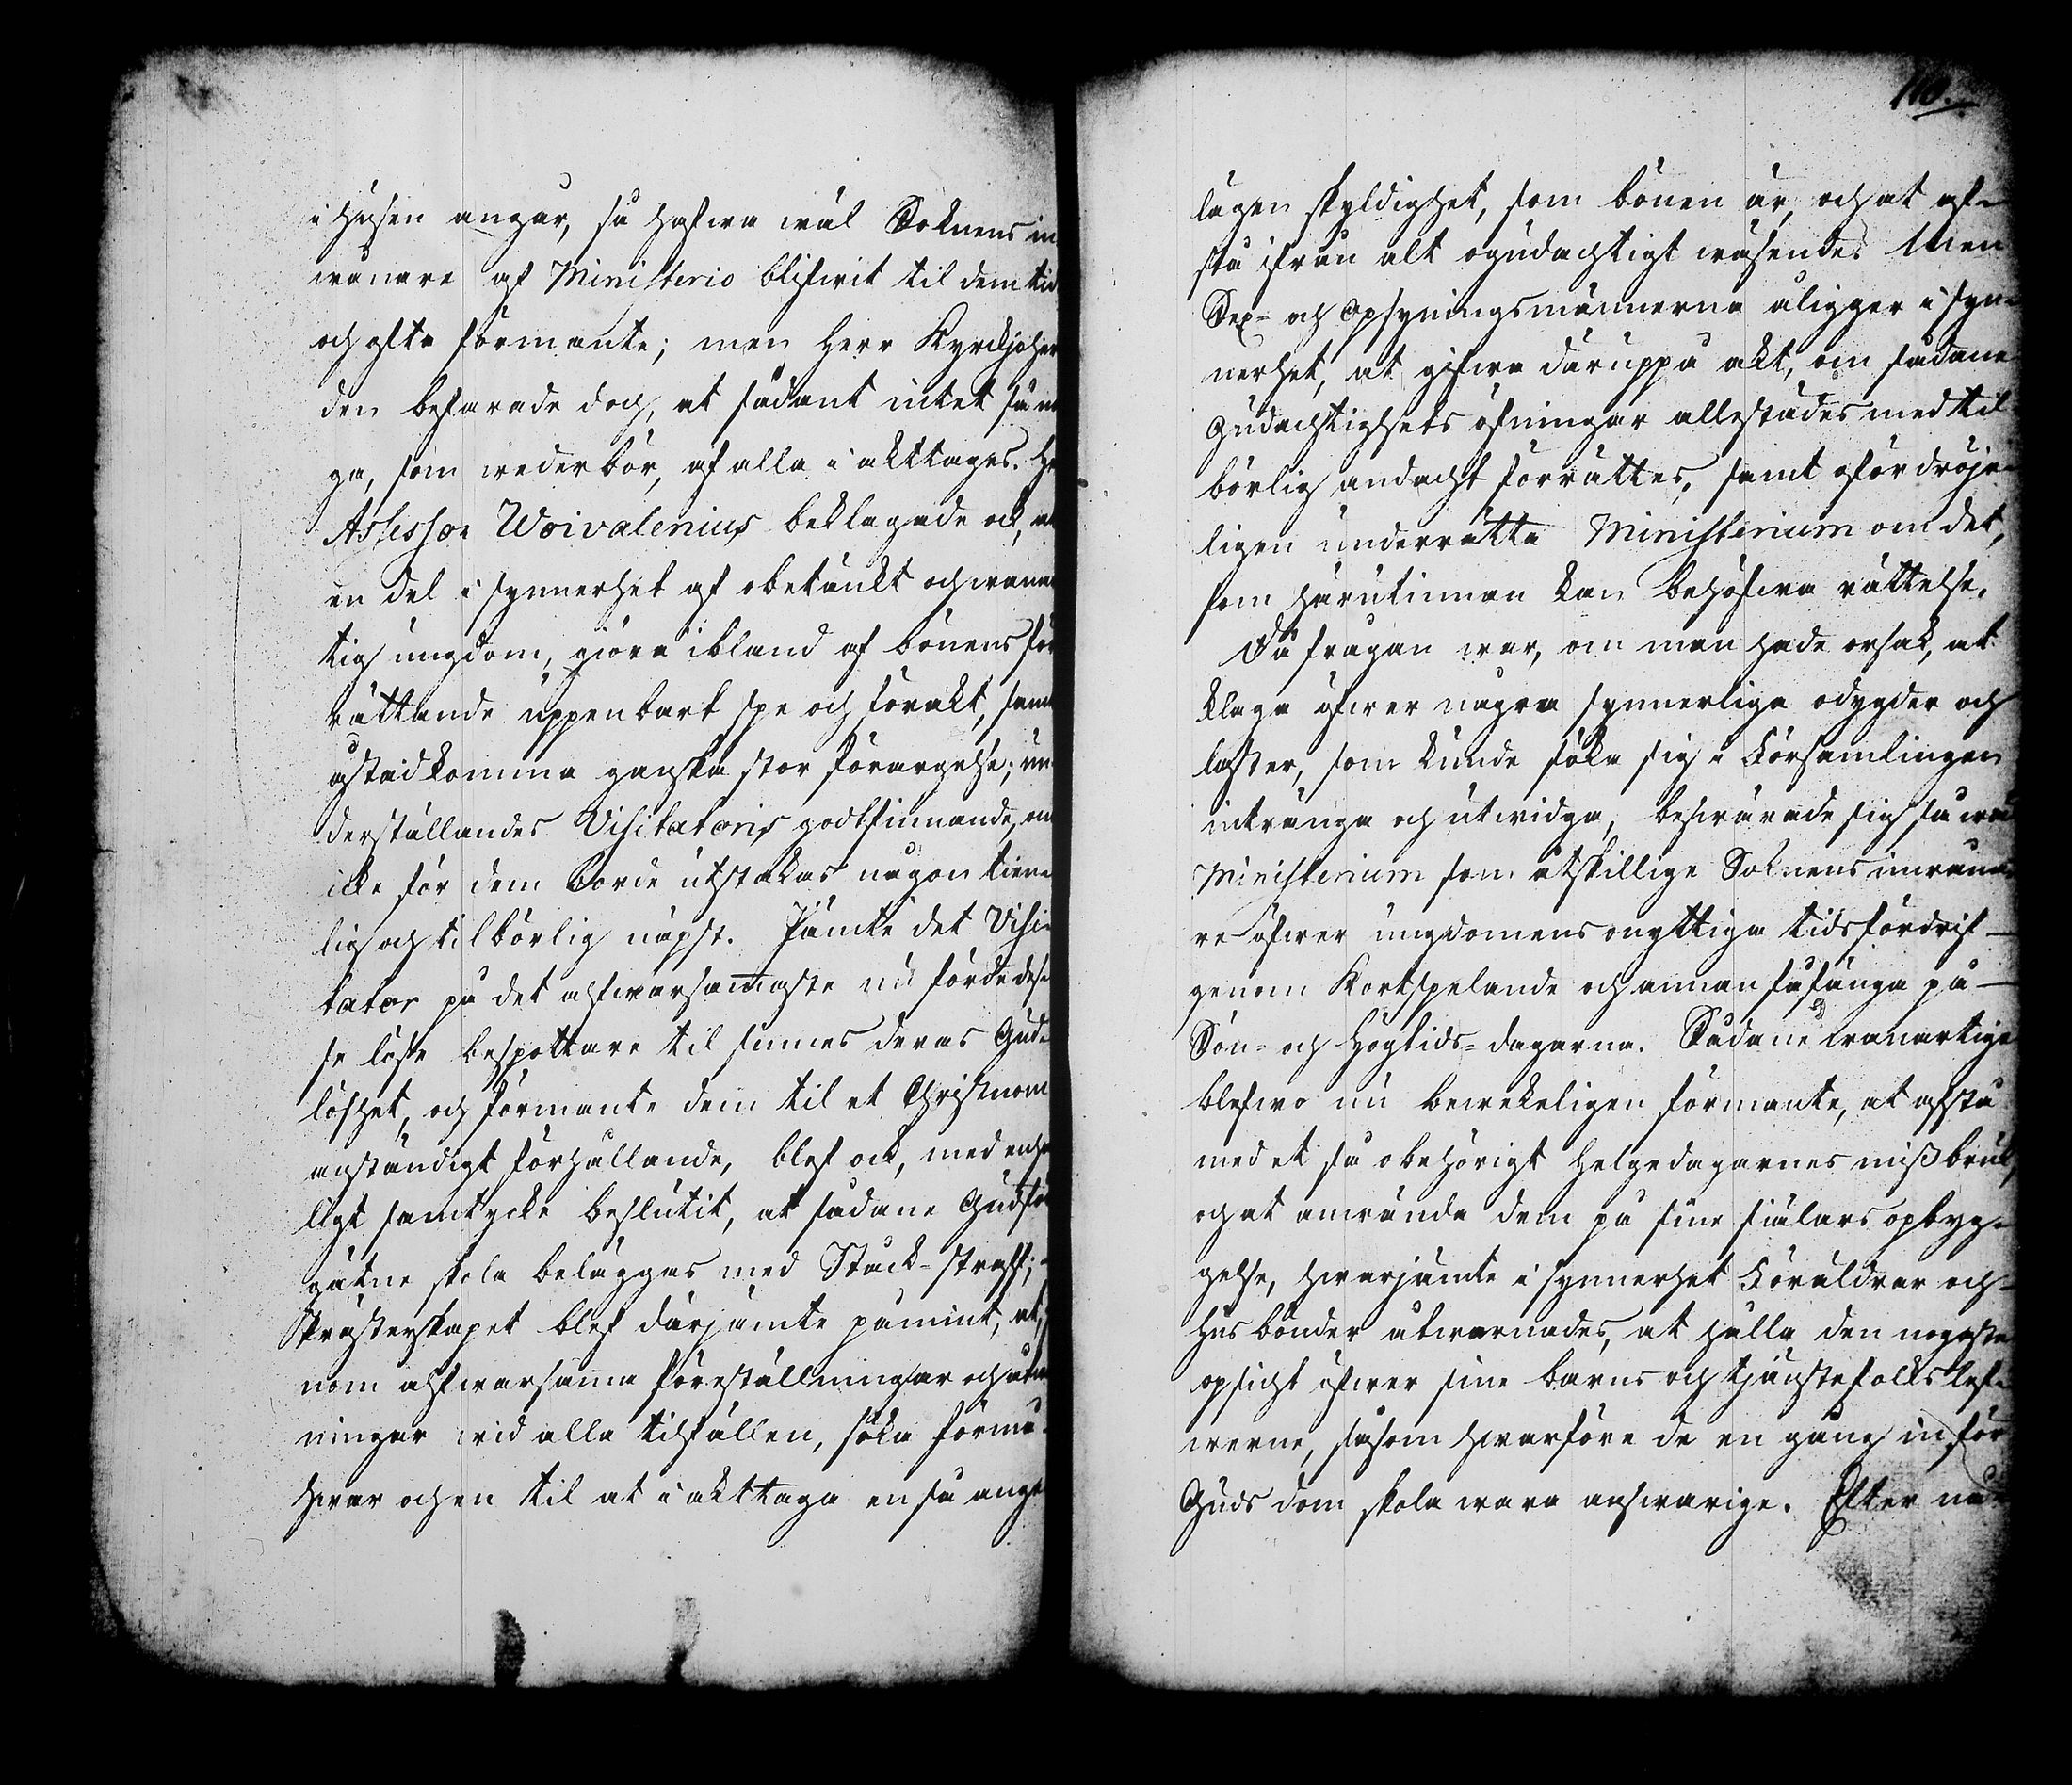 i Husen angår, så hafwa wäl Soknens in
wånare af Ministerio blifwit til dem tid
och ofta förmante; men Herr Kyrckjoher
den befarade doch, at sådant intet så no
ga, som wederbör, af alla i akttages. Hr
Assessor Woivalenius beklagade ock, at
en del i synnerhet af obetänkt och wanar
tig ungdom, giöra ibland af bönens för
rättande uppenbart spe och förakt, samt
åstadkomma ganska stor förargelse; un-
derställandes Visitatoris godtfinnande, om
icke för dem borde utstakas någon tien-
lig och tilbörlig näpst. Jämte det Visi-
tator på det alfwarsammaste nu förde des-
se löse bespottare til sinnes deras Gud-
löshet, och förmante dem til et Christnom
anständigt förhållande, blef ock, med enhä
lligt samtycke beslutit, at sådane Gudför
gätne skola beläggas med Stock-straff;
Prästerskapet blef därjämte påmint, at, ge
nom alfwarsamma föreställningar och åtwar
ningar wid alla tilfällen, söka förmå
hwar och en til at i akttaga en så ange
110.
lägen skyldighet, som bönen är, och at af-
stå ifrån alt ogudachtigt wäsende. Men
Sex- och Opsyningsmännerna åligger i syn-
nerhet, at gifwa däruppå akt, om sådane
Gudachtighets öfningar allestädes med til
börlig andacht förrättes, samt ofördröje-
ligen underrätta Ministerium om det,
som härutinnan kan behöfwa rättelse.
Då frågan war, om man hade orsak, at
klaga öfwer några synnerliga odygder och
laster, som kunde söka sig i Församlingen
intränga och utwidga, beswärade sig så wäl
Ministerium som åtskillige Soknens inwåna-
re öfwer ungdomens onyttiga tidsfördrif
genom Kortspelande och annan fåfänga på
Sön- och Högtids-dagarna. Sådane wanartige
blefwo nu bewekeligen förmante, at afstå
med et så obehörigt Helgedagarnes missbruk,
och at anwända dem på sine siälars opbyg-
gelse, hwarjämte i synnerhet Föräldrar och
Husbönder åtwarnades, at hålla den nogaste
opsicht öfwer sine barns och tjänstefolks lef-
werne, såsom hwarföre de en gång inför
Guds dom skola wara answarige. Efter nå-